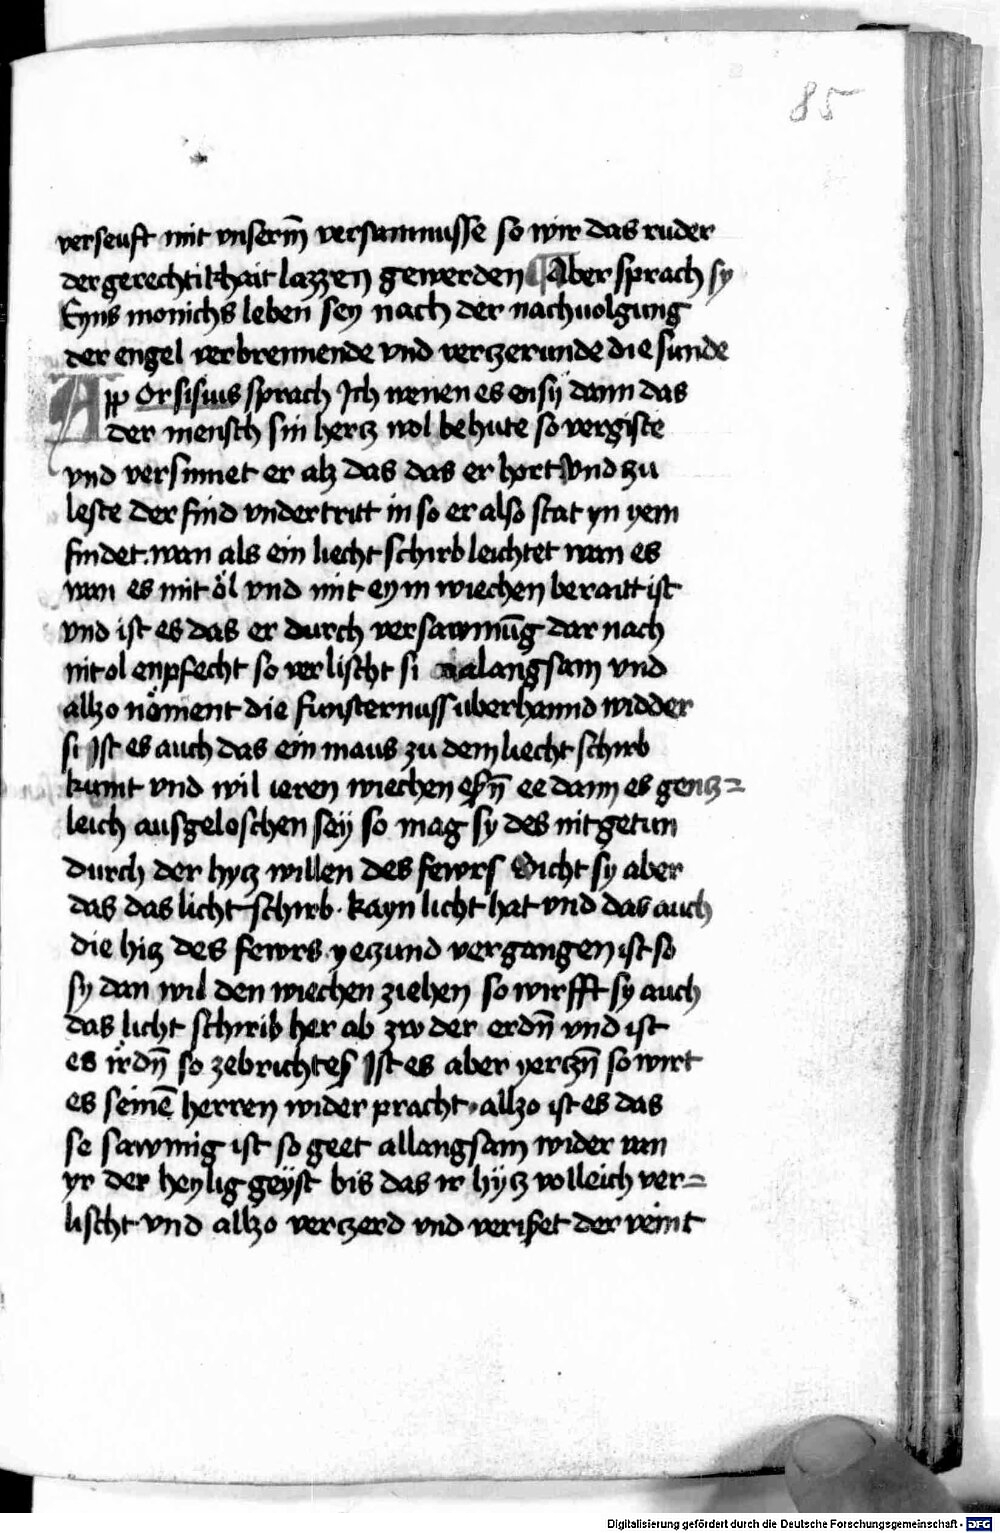 85
verseuft mit vnserm̄ versamnusse so wir das ruder
der gerechtikhait lazzen gewerden Aber sprach sy
Eyns monichs leben sey nach der nachuolgung
der engel verbrennende vnd verczerunde die sunde
App Orsisius sprach Ich wenen es en sÿ dann das
der mensch sin hertz wol behute so vergiste
vnd versumet er alz das das er hort Vnd zu
leste der find vndertritt in so er also stat yn yem
findet. wan als ein liecht schirb leichtet wan es
wan es mit öl vnd mit eym wiechen beraitt ist
vnd ist es das er durch versawmūg dar nach
nit ol enpfecht so verlischt si alangsam vnd
allzo nöment die funsternuss uberhannd widder
si Ist es auch das ein maus zu dem liecht schirb
kumt vnd wil ieren wiechen essn̄ ee dann es gentz=
leich ausgeloschen seÿ so mag sy des nit getun
durch der hytz willen des fewrs Sicht sy aber
das das licht schirb. kayn licht hat vnd das auch
die hitz des fewrs yeczund vergangen ist so
sy dan wil den wiechen ziehen so wirfft sy auch
das licht schirib her ab zw der erdn̄ vnd ist
es irdn̄ so zebrichtes Ist es aber yerczn̄ so wirt
es seinē herren wider pracht. allzo ist es das
se sawmig ist so geet allangsam wider van
yr der heylig geÿst bis das ir hÿtz volleich ver=
lischt vnd allzo verczerd vnd verisset der veint
Digitalisierung gefördert durch die Deutsche Forschungsgemeinschaft - DFG